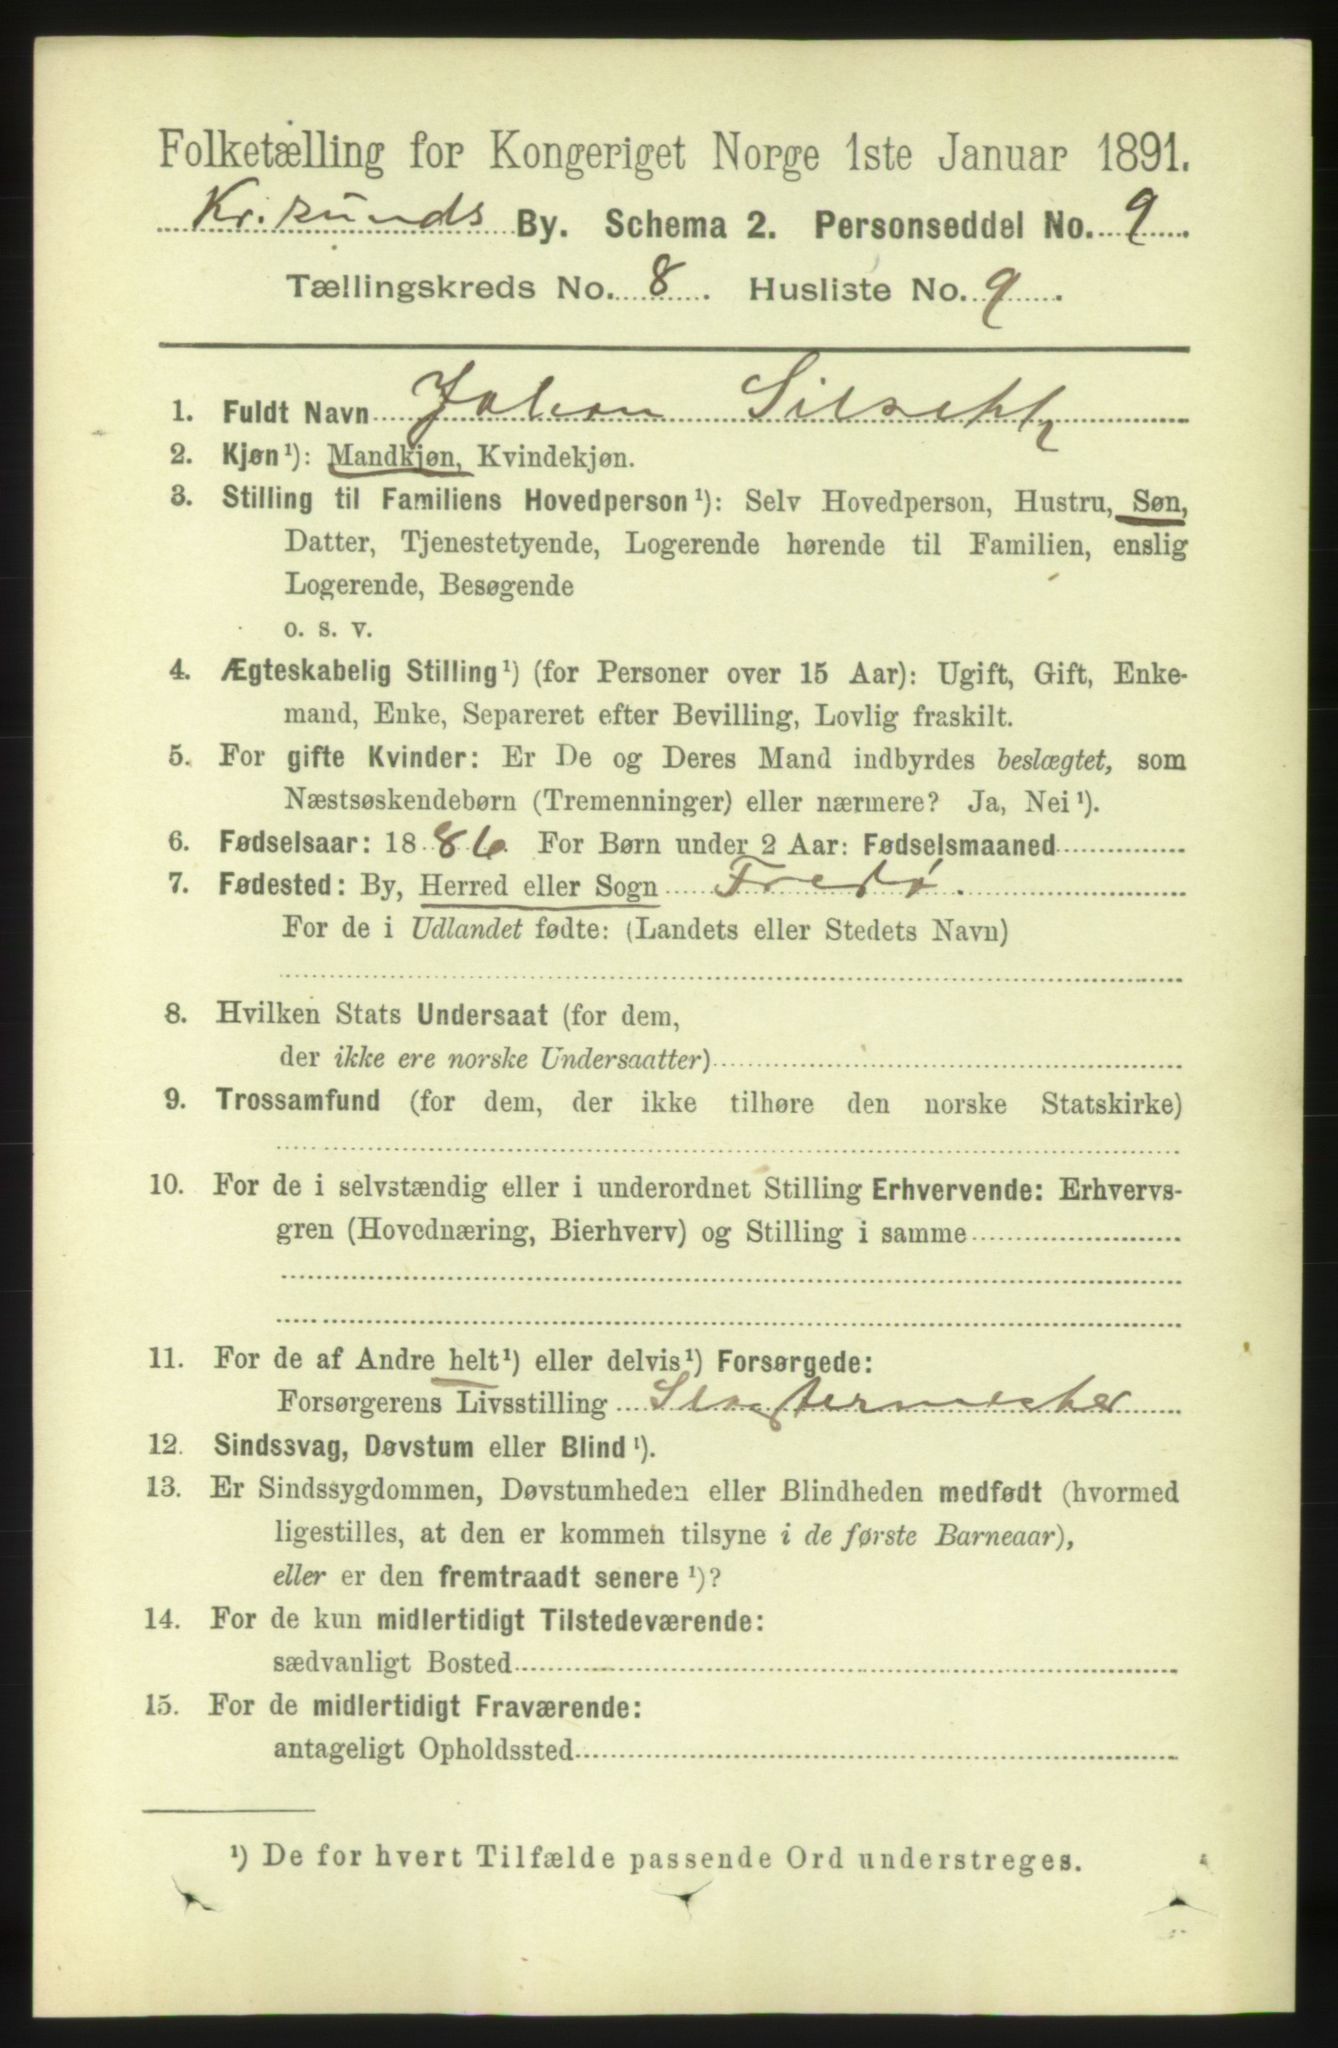 Folketælling for Kongeriget Norge 1ste Januar 1891.
Kr.sunds By. Schema 2. Personseddel No. 9.
Tællingskreds No. 8. Husliste No. 9.
1. Fuldt Navn Johan Silseth
2. Kjøn¹): Mandkjøn, Kvindekjøn.
3. Stilling til Familiens Hovedperson¹): Selv Hovedperson, Hustru, Søn,
Datter, Tjenestetyende, Logerende hørende til Familien, enslig
Logerende, Besøgende
o. s. v.
4. Ægteskabelig Stilling¹) (for Personer over 15 Aar): Ugift, Gift, Enke-
mand, Enke, Separeret efter Bevilling, Lovlig fraskilt.
5. For gifte Kvinder: Er De og Deres Mand indbyrdes beslægtet, som
Næstsøskendebørn (Tremenninger) eller nærmere? Ja, Nei¹).
6. Fødselsaar: 1886. For Børn under 2 Aar: Fødselsmaaned
7. Fødested: By, Herred eller Sogn Fredø.
For de i Udlandet fødte: (Landets eller Stedets Navn)
8. Hvilken Stats Undersaat (for dem,
der ikke ere norske Undersaatter)
9. Trossamfund (for dem, der ikke tilhøre den norske Statskirke)
10. For de i selvstændig eller i underordnet Stilling Erhvervende: Erhvervs-
gren (Hovednæring, Bierhverv) og Stilling i samme
11. For de af Andre helt¹) eller delvis¹) Forsørgede:
Forsørgerens Livsstilling Slagtermester
12. Sindssvag, Døvstum eller Blind¹).
13. Er Sindssygdommen, Døvstumheden eller Blindheden medfødt (hvormed
ligestilles, at den er kommen tilsyne i de første Barneaar),
eller er den fremtraadt senere¹)?
14. For de kun midlertidigt Tilstedeværende:
sædvanligt Bosted
15. For de midlertidigt Fraværende:
antageligt Opholdssted
¹) De for hvert Tilfælde passende Ord understreges.